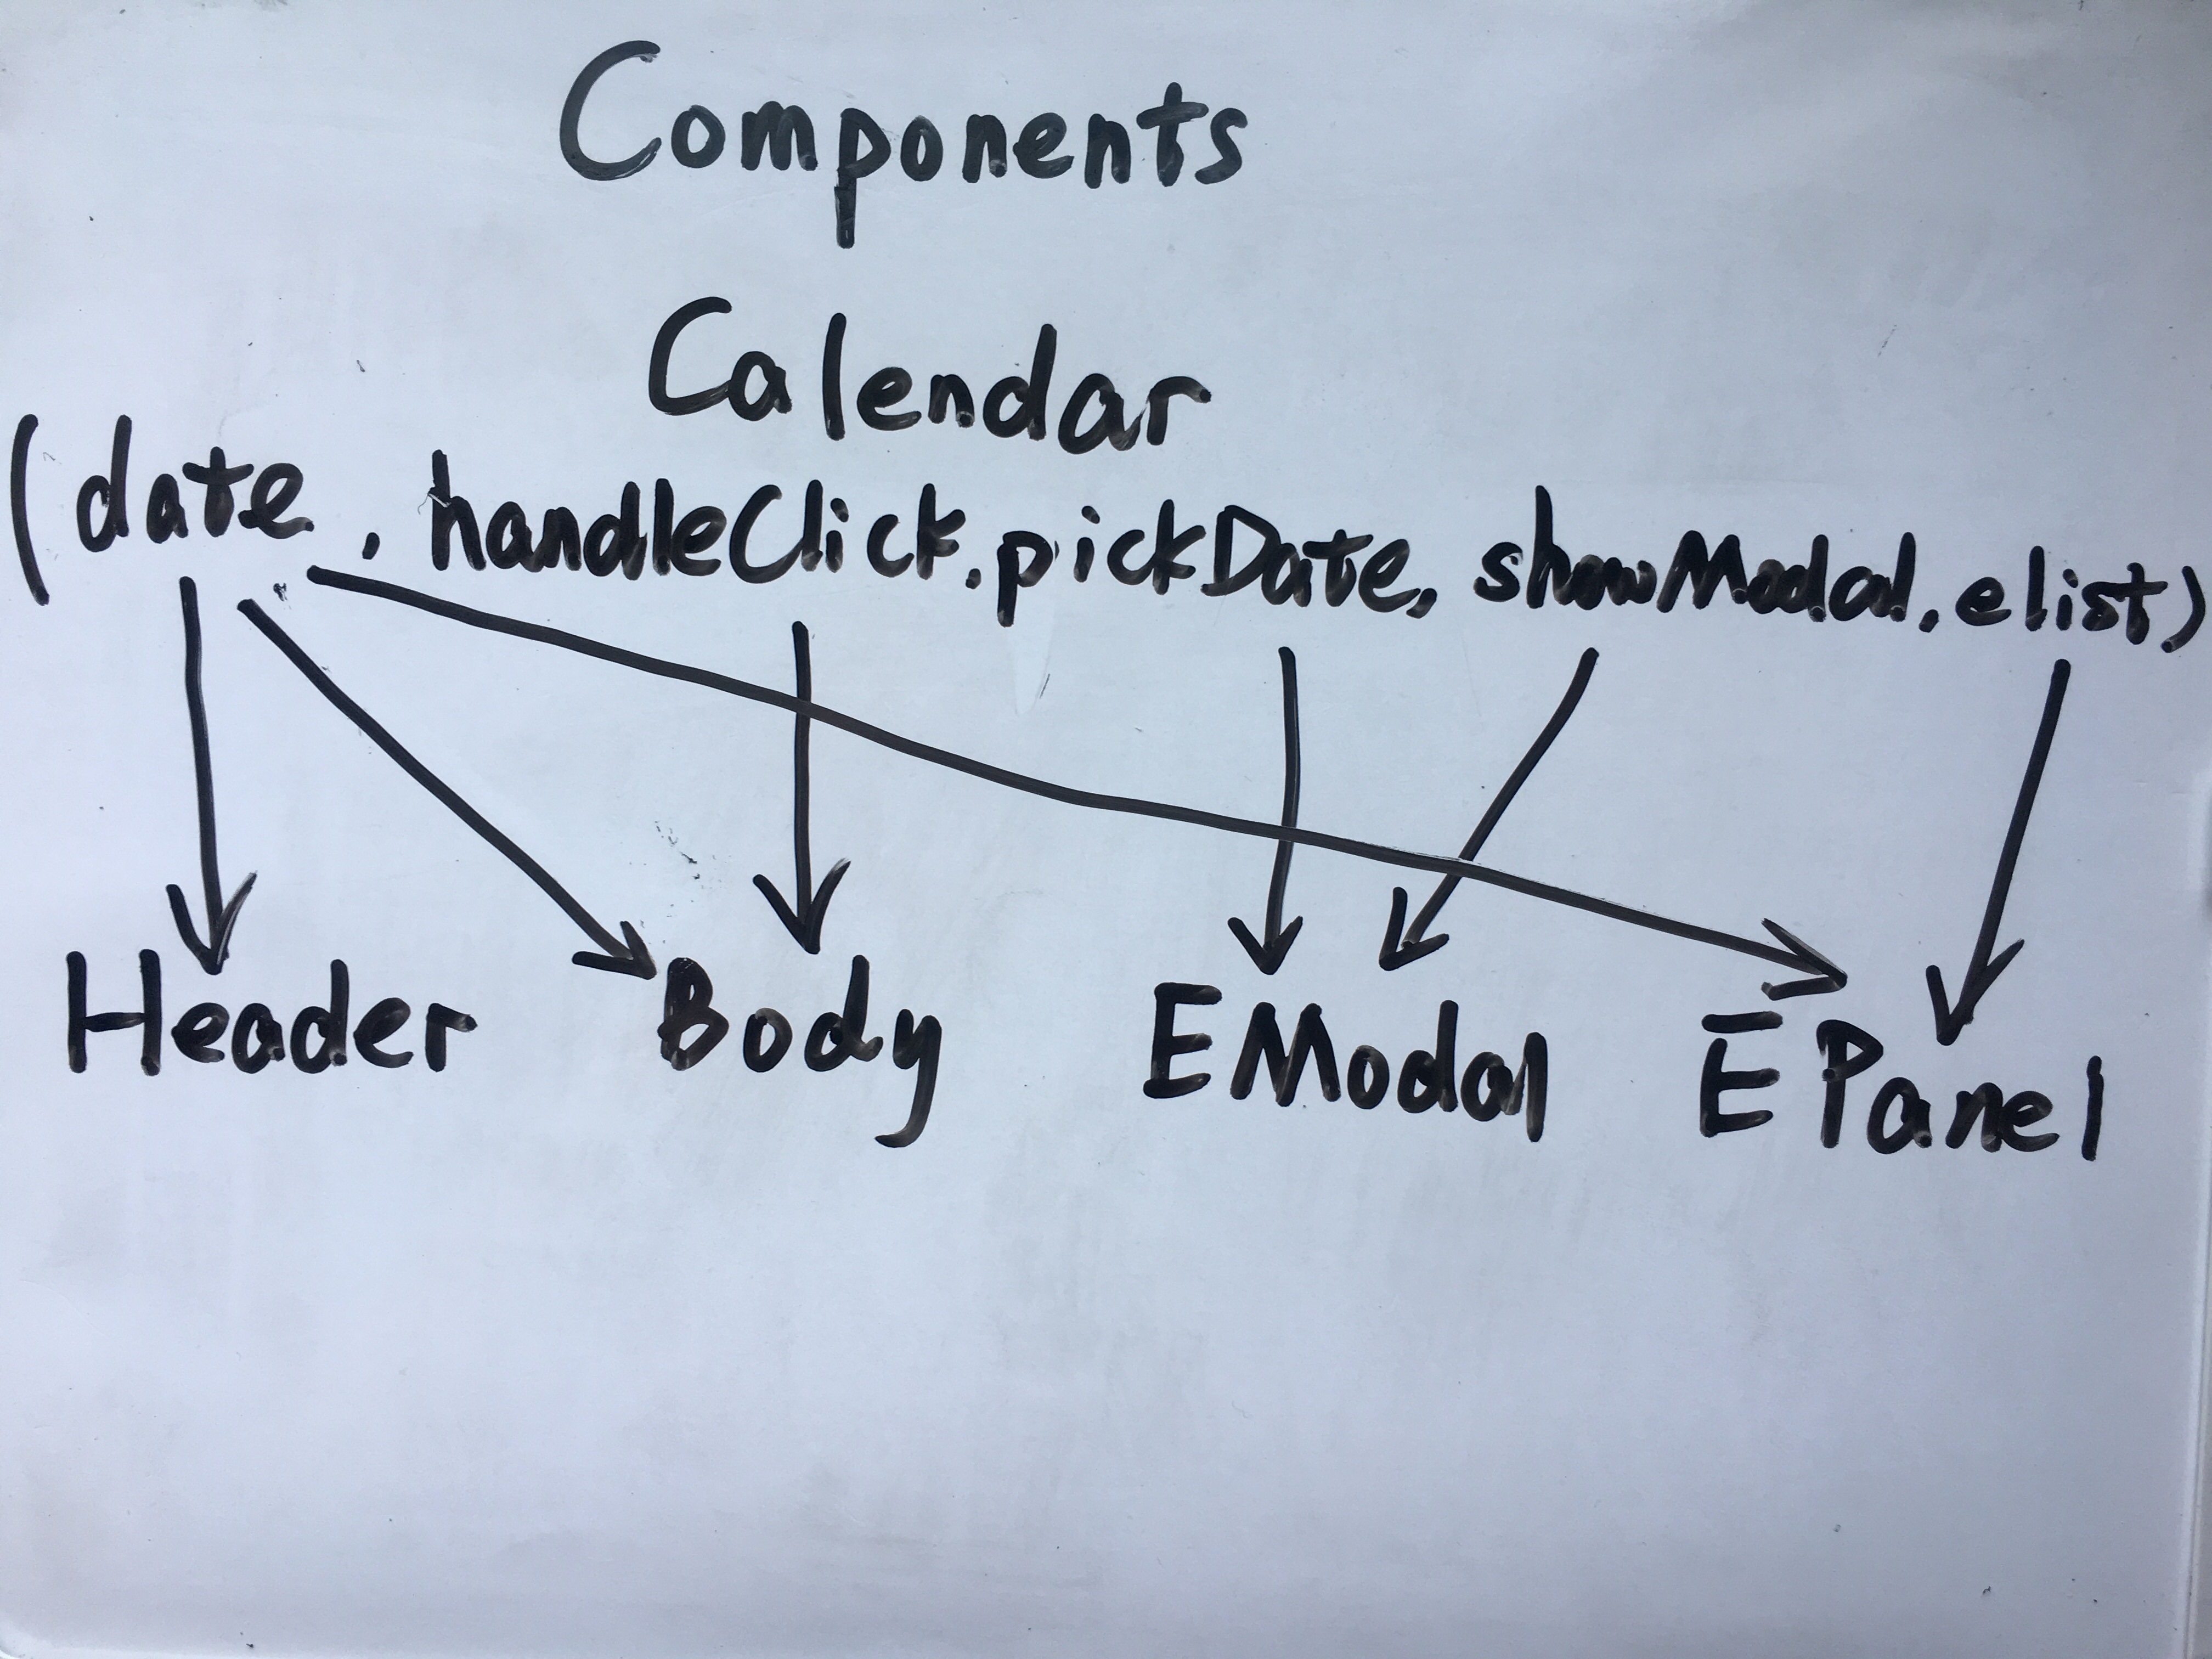 Components
Calendar
(date, handleClick, pickDate, showModal, elist)
Header Body EModal EPanel